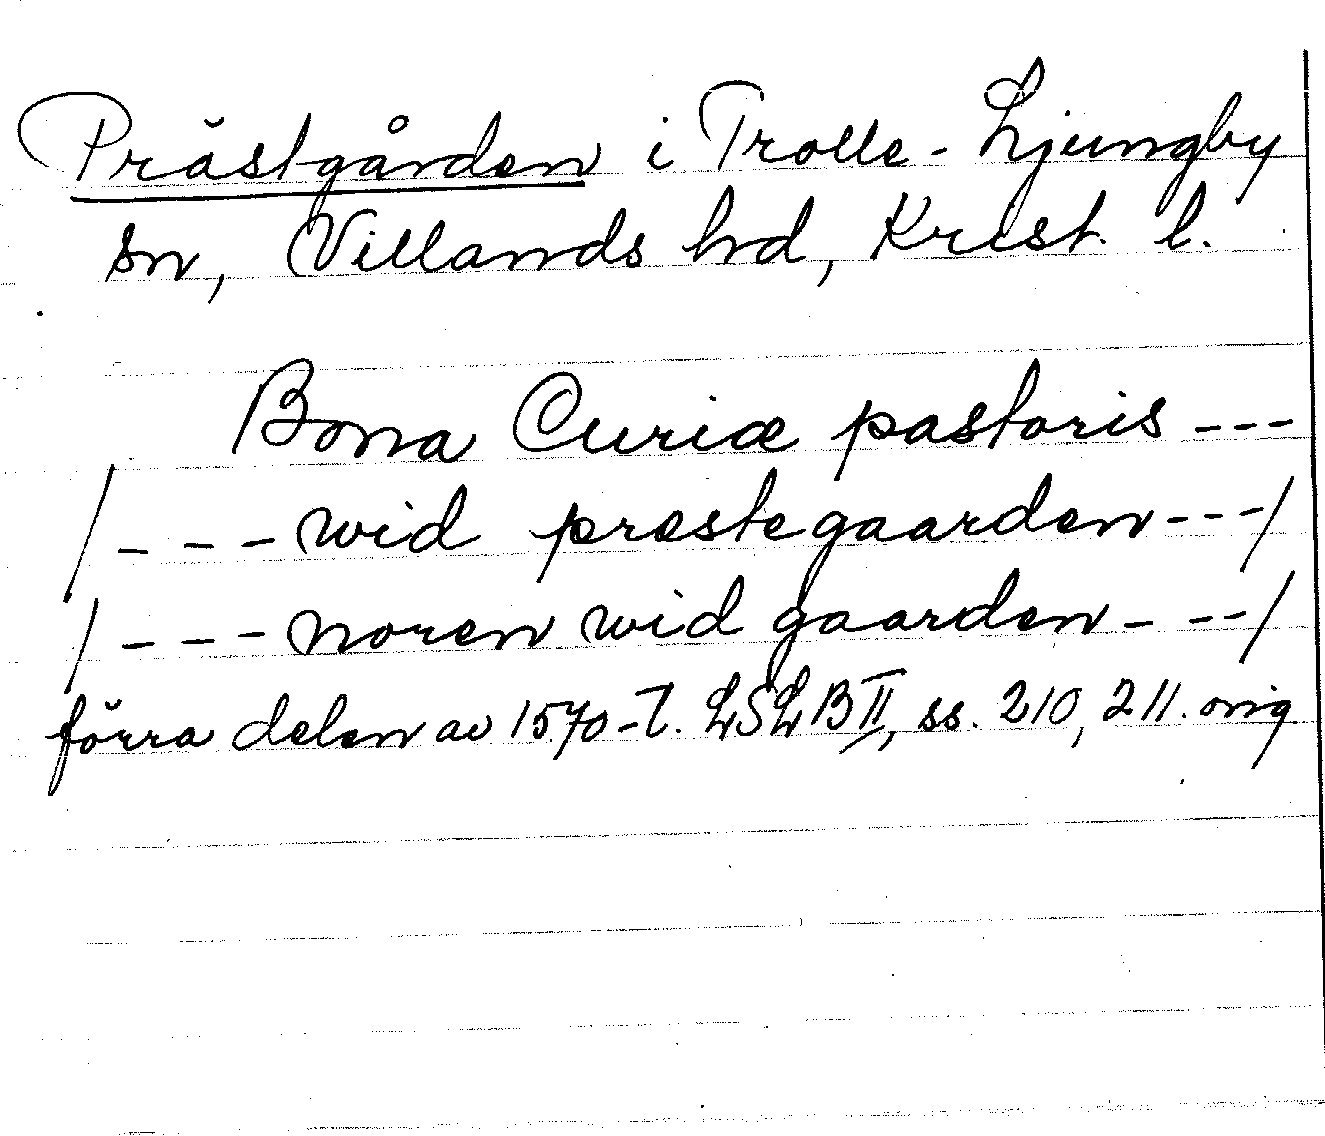 Prästgården i Trolle-Ljungby
sn, Villands hd, Krist. l.
Bona Curiæ pastoris ---
/---wid prestegaarden---/
/---noren wid gaarden---/
förra delen av 1570-t. LSLB II, ss. 210, 211. orig